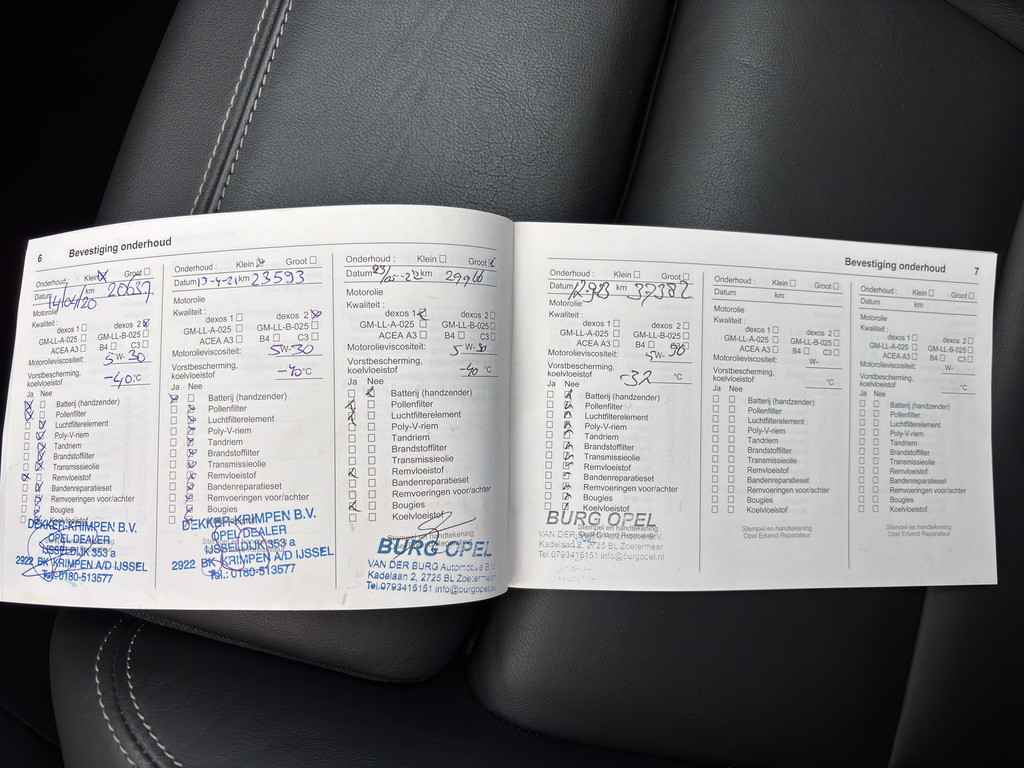 6 Bevestiging onderhoud
Onderhoud: Klein ☒ Groot ☐
Datum 14/04/20 km 20637
Motorolie
Kwaliteit:
dexos 1 ☐ dexos 2 ☒
GM-LL-A-025 ☐ GM-LL-B-025 ☐
ACEA A3 ☐ B4 ☐ C3 ☐
Motorolieviscositeit: 5 W- 30
Vorstbescherming,
koelvloeistof -40 °C
Ja Nee
☒ ☐ Batterij (handzender)
☒ ☐ Pollenfilter
☐ ☒ Luchtfilterelement
☐ ☒ Poly-V-riem
☐ ☒ Tandriem
☐ ☒ Brandstoffilter
☐ ☒ Transmissieolie
☒ ☐ Remvloeistof
☐ ☒ Bandenreparatieset
☐ ☒ Remvoeringen voor/achter
☐ ☒ Bougies
Koelvloeistof
DEKKER KRIMPEN B.V.
OPEL DEALER
IJSSELDIJK 353 a
2922 BK KRIMPEN A/D IJSSEL
Tel.: 0180-513577
Onderhoud : Klein ☒ Groot ☐
Datum km 23593
Motorolie
Kwaliteit :
dexos 1 ☐ dexos 2 ☒
GM-LL-A-025 ☐ GM-LL-B-025 ☐
ACEA A3 ☐ B4 ☐ C3 ☐
Motorolieviscositeit: 5 W- 30
Vorstbescherming,
koelvloeistof -40 °C
Ja Nee
☒ ☐ Batterij (handzender)
☐ ☒ Pollenfilter
☐ ☒ Luchtfilterelement
☐ ☒ Poly-V-riem
☐ ☒ Tandriem
☐ ☒ Brandstoffilter
☐ ☒ Transmissieolie
☐ ☒ Remvloeistof
☐ ☒ Bandenreparatieset
☐ ☒ Remvoeringen voor/achter
☐ ☒ Bougies
Koelvloeistof
DEKKER KRIMPEN B.V.
OPEL DEALER
IJSSELDIJK 353 a
2922 BK KRIMPEN A/D IJSSEL
Tel.: 0180-513577
Onderhoud : Klein ☐ Groot ☒
Datum km
Motorolie
Kwaliteit :
dexos 1 ☒ dexos 2 ☐
GM-LL-A-025 ☐ GM-LL-B-025 ☐
ACEA A3 ☐ B4 ☐ C3 ☐
Motorolieviscositeit: 5 W- 30
Vorstbescherming,
koelvloeistof -40 °C
Ja Nee
☐ ☒ Batterij (handzender)
☒ ☐ Pollenfilter
☒ ☐ Luchtfilterelement
☐ ☐ Poly-V-riem
☐ ☐ Tandriem
☐ ☐ Brandstoffilter
☐ ☐ Transmissieolie
☒ ☐ Remvloeistof
☐ ☐ Bandenreparatieset
☐ ☐ Remvoeringen voor/achter
☒ ☐ Bougies
☐ ☐ Koelvloeistof
Stempel en handtekening
BURG OPEL
VAN DER BURG Automobielen B.V.
Kadelaan 2, 2725 BL Zoetermeer
Tel.0793415151 info@burgopel.nl
Bevestiging onderhoud 7
Onderhoud : Klein ☐ Groot ☐
Datum km 37387
Motorolie
Kwaliteit :
dexos 1 ☐ dexos 2 ☐
GM-LL-A-025 ☐ GM-LL-B-025 ☐
ACEA A3 ☐ B4 ☐ C3 ☐
Motorolieviscositeit: 5W-
Vorstbescherming,
koelvloeistof -32 °C
Ja Nee
☐ ☒ Batterij (handzender)
☐ ☒ Pollenfilter
☐ ☒ Luchtfilterelement
☐ ☒ Poly-V-riem
☐ ☒ Tandriem
☐ ☒ Brandstoffilter
☐ ☒ Transmissieolie
☐ ☒ Remvloeistof
☐ ☒ Bandenreparatieset
☐ ☒ Remvoeringen voor/achter
☐ ☒ Bougies
Koelvloeistof
Stempel en handtekening
BURG OPEL
VAN DER BURG
Kadelaan 2, 2725 BL Zoetermeer
Tel.0793415151 info@burgopel.nl
Onderhoud : Klein ☐ Groot ☐
Datum km
Motorolie
Kwaliteit :
dexos 1 ☐ dexos 2 ☐
GM-LL-A-025 ☐ GM-LL-B-025 ☐
ACEA A3 ☐ B4 ☐ C3 ☐
Motorolieviscositeit: W-
Vorstbescherming,
koelvloeistof °C
Ja Nee
☐ ☐ Batterij (handzender)
☐ ☐ Pollenfilter
☐ ☐ Luchtfilterelement
☐ ☐ Poly-V-riem
☐ ☐ Tandriem
☐ ☐ Brandstoffilter
☐ ☐ Transmissieolie
☐ ☐ Remvloeistof
☐ ☐ Bandenreparatieset
☐ ☐ Remvoeringen voor/achter
☐ ☐ Bougies
☐ ☐ Koelvloeistof
Stempel en handtekening
Opel Erkend Reparateur
Onderhoud : Klein ☐ Groot ☐
Datum km
Motorolie
Kwaliteit :
dexos 1 ☐ dexos 2 ☐
GM-LL-A-025 ☐ GM-LL-B-025 ☐
ACEA A3 ☐ B4 ☐ C3 ☐
Motorolieviscositeit: W-
Vorstbescherming,
koelvloeistof °C
Ja Nee
☐ ☐ Batterij (handzender)
☐ ☐ Pollenfilter
☐ ☐ Luchtfilterelement
☐ ☐ Poly-V-riem
☐ ☐ Tandriem
☐ ☐ Brandstoffilter
☐ ☐ Transmissieolie
☐ ☐ Remvloeistof
☐ ☐ Bandenreparatieset
☐ ☐ Remvoeringen voor/achter
☐ ☐ Bougies
☐ ☐ Koelvloeistof
Stempel en handtekening
Opel Erkend Reparateur